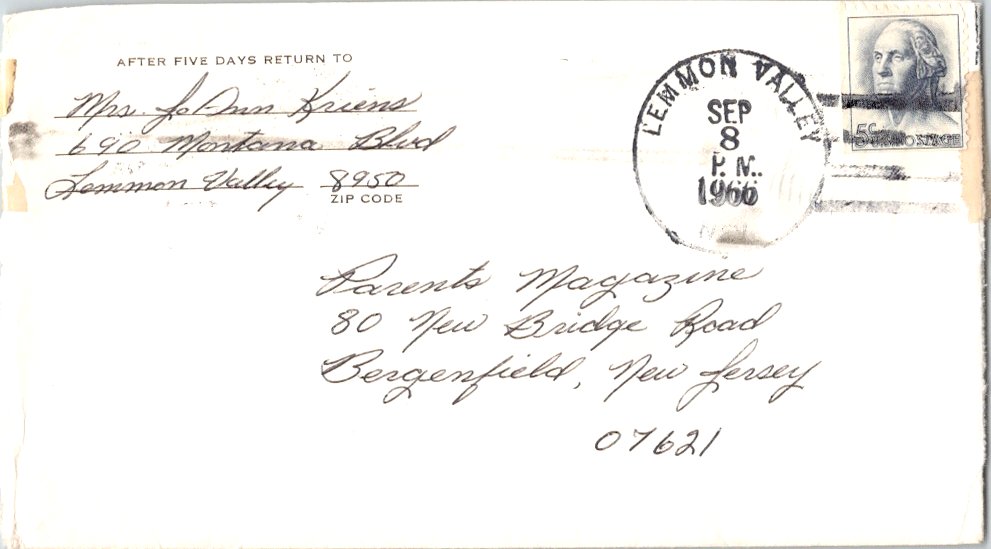 AFTER FIVE DAYS RETURN TO
Mrs. JoAnn Kriens
690 Montana Blvd
Lemmon Valley 8950
ZIP CODE
LEMMON VALLEY
SEP
8
P.M.
1966
5c
Parents Magazine
80 New Bridge Road
Bergenfield, New Jersey
07621